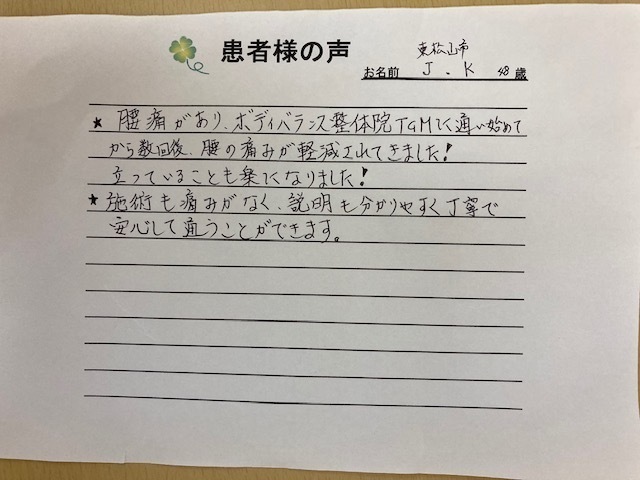 患者様の声
東松山市
お名前 J.K 48歳
★ 腰痛があり、ボディバランス整体院TGMに通い始めて
から数回後、腰の痛みが軽減されてきました!
立っていることも楽になりました!
★ 施術も痛みがなく、説明も分かりやすく丁寧で
安心して通うことができます。